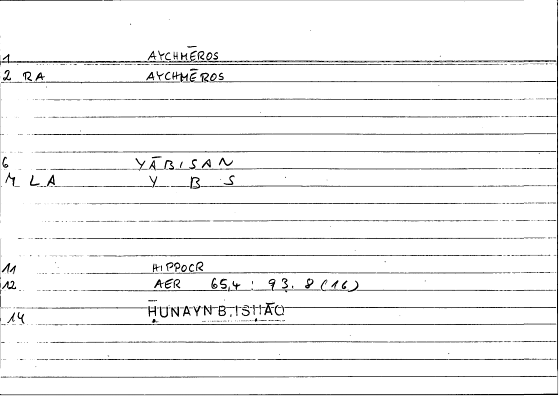 1 AYCHMĒROS
2 RA AYCHMĒROS
6 YĀBISAN
M L A Y B S
11 HIPPOCR
12 AER 65,4 : 93. 8 (16)
14 ḤUNAYN B. ISḤĀQ